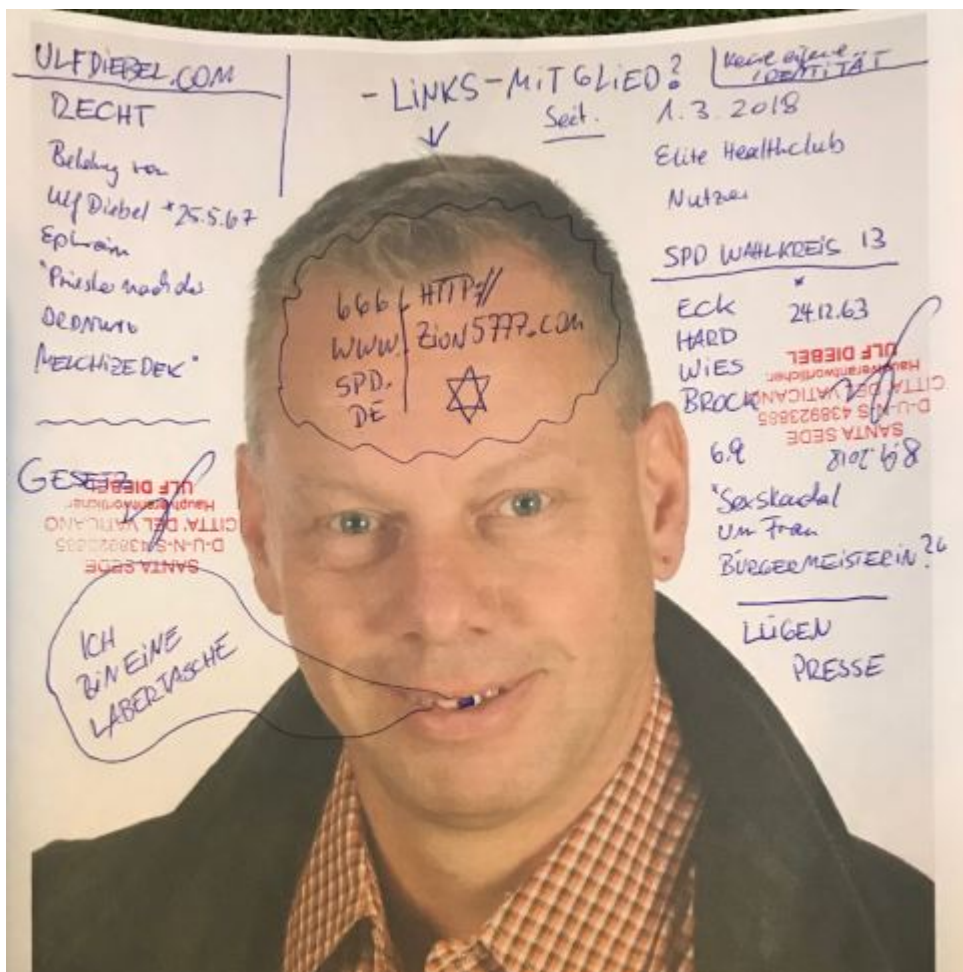 ULFDIEBEL.COM
RECHT
Ulf Diebel *25.5.67
Ephraim
"Priester nach der
ORDNUNG
MELCHIZEDEK"
GESETZ
ULF DIEBEL
Hauptverantwortlicher
CITTA' DEL VATICANO
D-U-N-S 438923885
SANTA SEDE
ICH
BIN EINE
LABERTASCHE
- LINKS-MITGLIED?
Seit.
666 HTTP://
WWW. ZION5777.COM
SPD.
DE
Keine eigene
IDENTITÄT
1.3.2018
Elite Healthclub
Nutzer
SPD WAHLKREIS 13
*
ECK 24.12.63
HARD
WIES
BROCK
ULF DIEBEL
Hauptverantwortlicher
CITTA' DEL VATICANO
D-U-N-S 438923885
SANTA SEDE
"Sexskandal
um Frau
BÜRGERMEISTERIN?"
LÜGEN
PRESSE